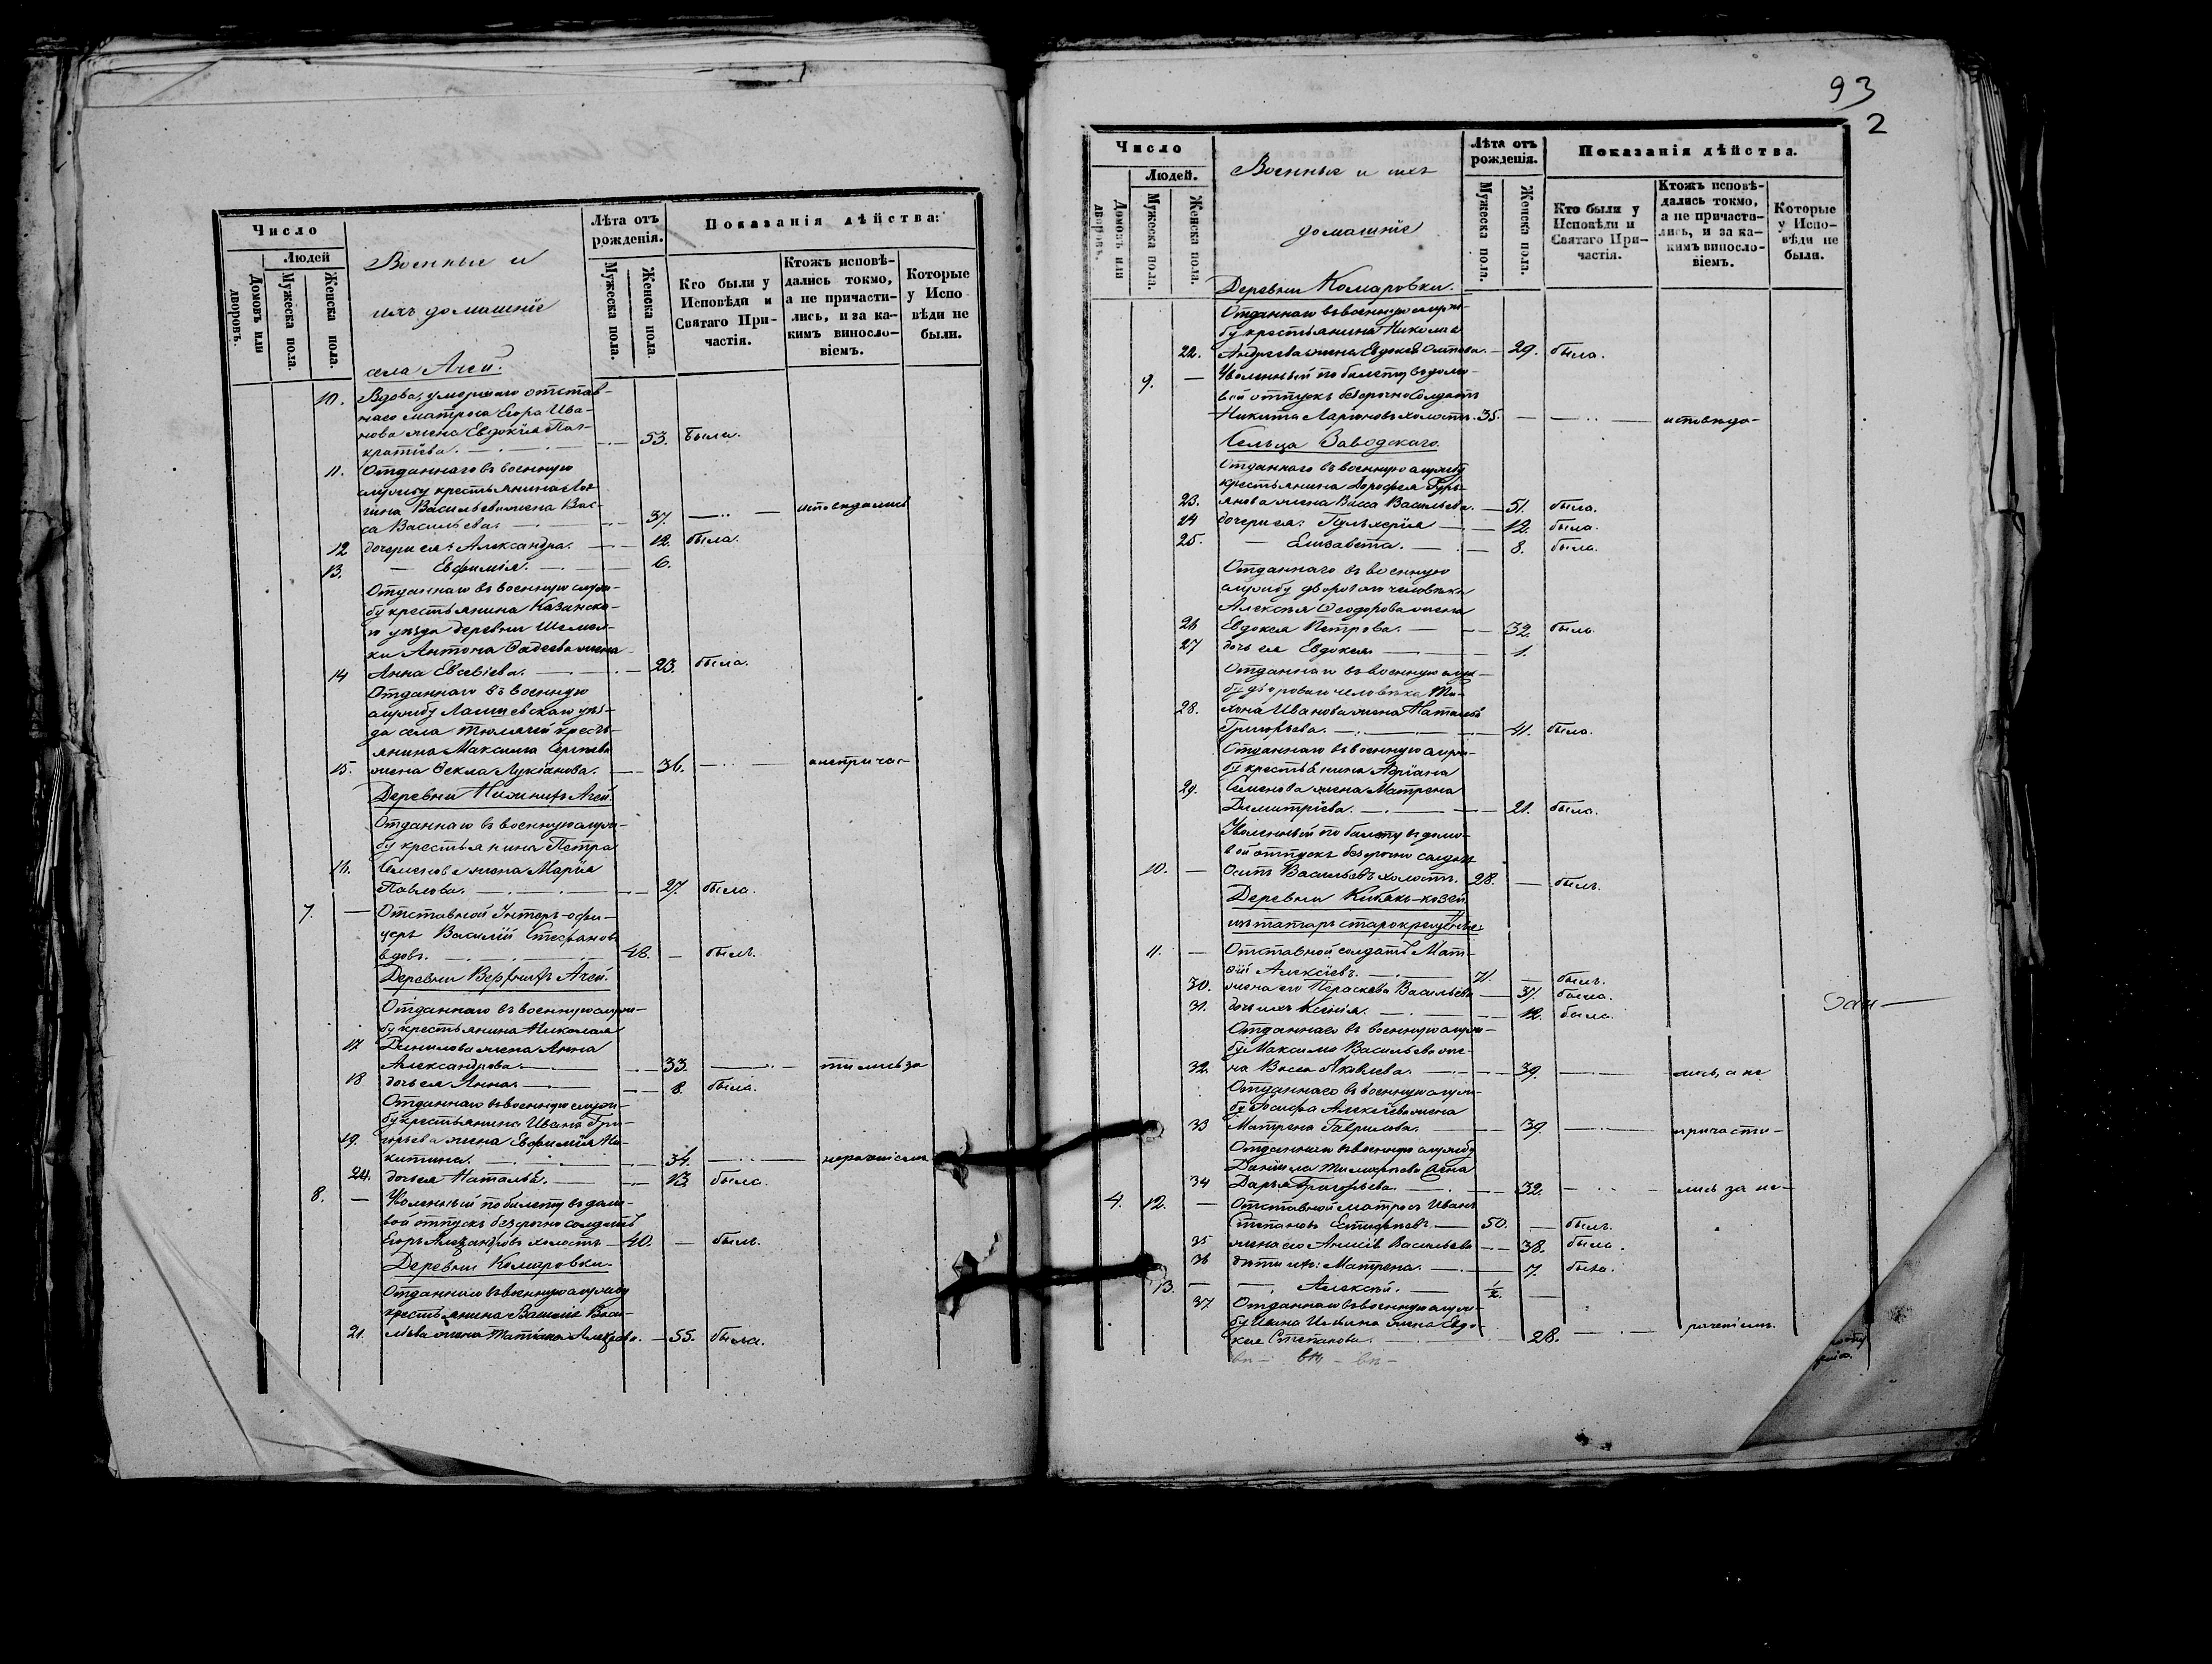 Число
Людей
Домовъ или дворовъ.
Мужеска пола.
Женска пола.
Военные и
ихъ домашніе
Лѣта отъ рожденія.
Мужеска пола.
Женска пола.
Показанія дѣйства:
Кто были у Исповѣди и Святаго Причастія.
Ктожъ исповѣдались токмо, а не причастились, и за какимъ винословіемъ.
Которые у Исповѣди не были.
села Ачей.
10. Вдова, умершаго отстав-
наго матроса Егора Ива-
нова жена Евдокія Пан-
кратіева. 53. была.
11. Отданнаго въ военную
службу крестьянина Лон-
гина Васильева жена Вас-
са Васильева. 37. исповѣдались
12 дочери ея: Александра. 12. была.
13. — Евфимія. 6.
Отданнаго въ военную служ-
бу крестьянина Казанска-
го уѣзда деревни
Антона Фадеева жена
14 Анна Евсевіева. 23. была.
Отданнаго въ военную
службу Лаишевскаго уѣз-
да села Тюлячей кресть-
янина Максима Сергѣева
15. жена Ѳекла Лукіанова. 36. а не причас-
Деревни Нижнихъ Ачей.
Отданнаго въ военную служ-
бу крестьянина Петра
16. Семенова жена Марія
Павлова. 27. была.
7. — Отставной Унтеръ-офи-
церъ Василій Стефановъ
вдовъ. 48. — былъ.
Деревни Верхнихъ Ачей.
Отданнаго въ военную служ-
бу крестьянина Николая
17 Данилова жена Анна
Александрова. 33. тились за
18 дочь ея Анна. 8. была.
Отданнаго въ военную служ-
бу крестьянина Ивана Гри-
19. горьева жена Евфимія Ни-
китина. 34. нераченіемъ
20. дочь ея Наталья. 13. была.
8. — Уволенный по билету въ домо-
вой отпускъ безсрочно солдатъ
Егоръ Александровъ холостъ 40. — былъ.
Деревни Комаровки.
Отданнаго въ военную службу
крестьянина Василія Васи-
21. льева жена Татіана 55. была.
93
2
Число
Людей.
Домовъ или дворовъ.
Мужеска пола.
Женска пола.
Военные и ихъ
домашніе
Лѣта отъ рожденія.
Мужеска пола.
Женска пола.
Показанія дѣйства.
Кто были у Исповѣди и Святаго Причастія.
Ктожъ исповѣдались токмо, а не причастились, и за какимъ винословіемъ.
Которые у Исповѣди не были.
Деревни Комаровки.
Отданнаго въ военную служ-
бу крестьянина Николая
22. Андреева жена Евдокія 29. была.
9. — Уволенный по билету въ домо-
вой отпускъ безсрочно солдатъ
Никита Ларіоновъ холостъ. 35. исповѣда-
Сельца Заводскаго.
Отданнаго въ военную службу
крестьянина Дорофея Гурь-
23. янова жена Васса Васильева. 51. была.
24 дочери ея: Пульхерія 12. была.
25. — Елизавета. 8. была.
Отданнаго въ военную
службу двороваго человѣка
Алексѣя Ѳеодорова жена
26 Евдокея Петрова. 32. была.
27 дочь ея Евдокея 1.
Отданнаго въ военную служ-
бу двороваго человѣка Ти-
28. хона Иванова жена Наталья
Григорьева. 41. была.
Отданнаго въ военную служ-
бу крестьянина Адріана
29. Семенова жена Матрена
Димитріева. 21. была.
Уволенный по билету въ домо-
вой отпускъ безсрочно солдатъ
10. — Осипъ Васильевъ холостъ. 28. — былъ.
Деревни Кибякъ-козей
изъ татаръ старокрещеныхъ.
11. — Отставной солдатъ Мат-
ѳій Алексіевъ. 71. — былъ.
30. жена его Параскева Васильева 37. была.
31. дочь ихъ Ксенія. 12. была.
Отданнаго въ военную служ-
бу Максима Васильева же-
32. на Васса Яковлева. 39. лись, а не
Отданнаго въ военную служ-
бу Іосифа Алексіева жена
33 Матрена Гаврилова. 39. причасти-
Отданнаго въ военную службу
Даніила Тимофѣева жена
34 Дарья Григорьева. 32. лись за не-
4. 12. — Отставной матросъ Иванъ
Степановъ 50. — былъ.
35 жена его Анисія Васильева 38. была.
36 дѣти ихъ: Матрена. 7. была.
13. — — Алексѣй. ½. —
37 Отданнаго въ военную служ-
бу Ивана Ильина жена Евдо-
кея Степанова. 28. раченіемъ.